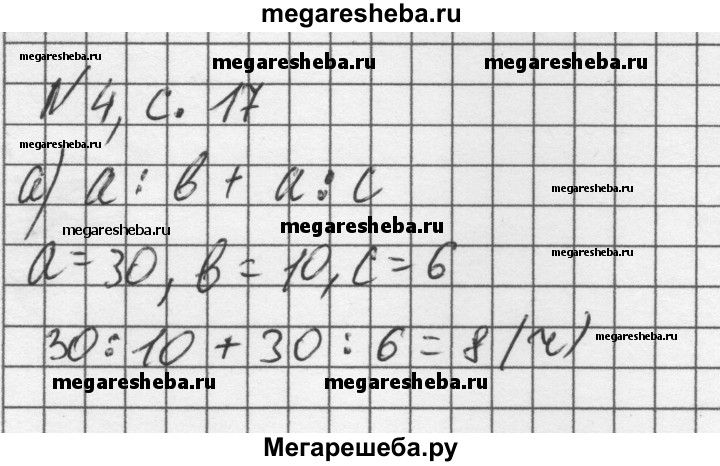 megaresheba.ru
megaresheba.ru megaresheba.ru megaresheba.ru
N 4, с. 17
megaresheba.ru
а) а : в + а : с megaresheba.ru
megaresheba.ru megaresheba.ru
а = 30, в = 10, с = 6 megaresheba.ru
30 : 10 + 30 : 6 = 8 (ч) megaresheba.ru
megaresheba.ru megaresheba.ru
Мегарешеба.ру